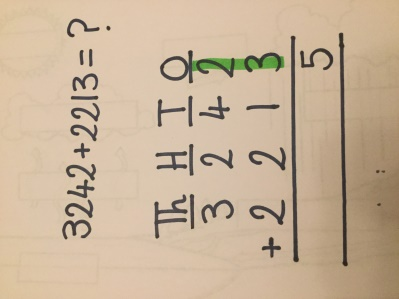 3242+2213=?
Th H T O
3 2 4 2
+ 2 2 1 3
5